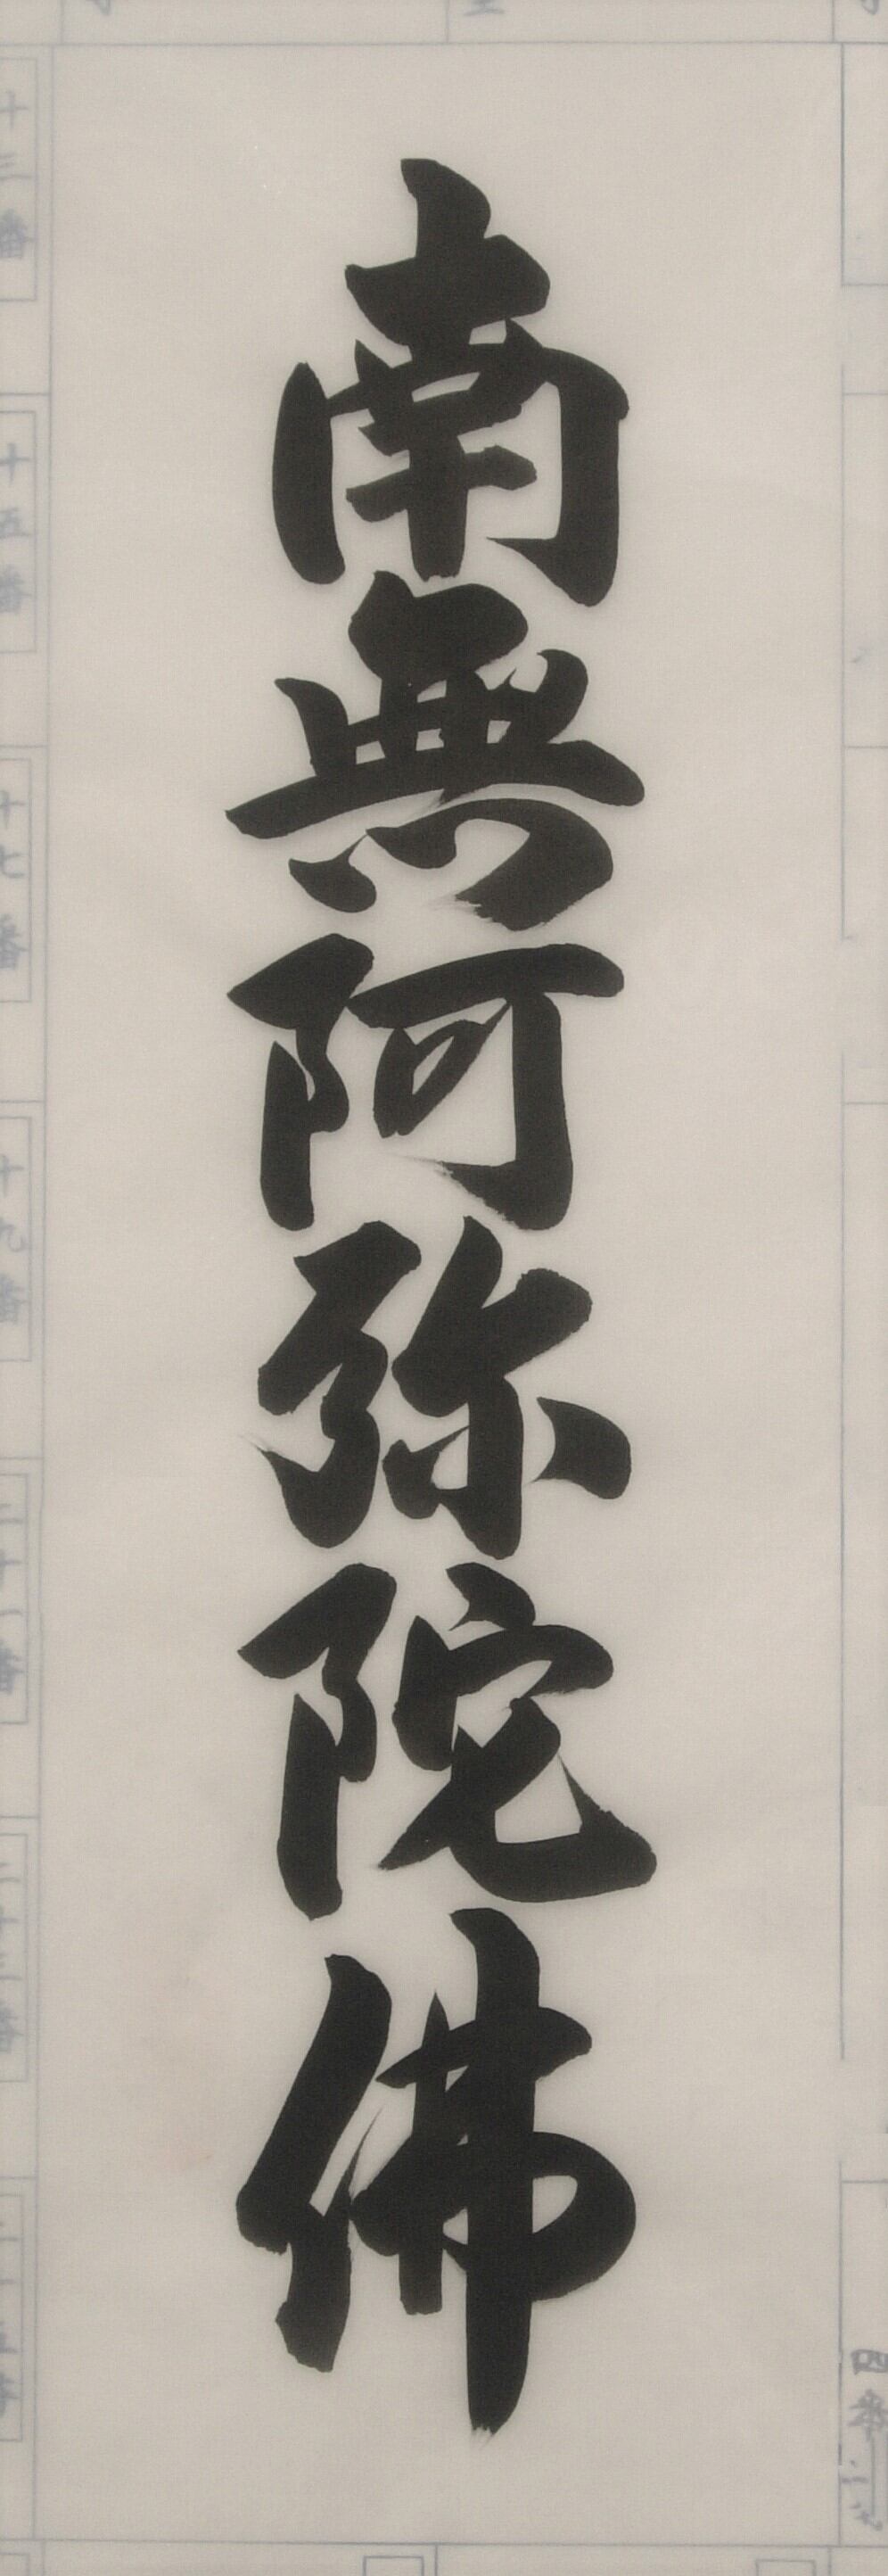 南無阿弥陀佛
十三番
十五番
十七番
十九番
二十一番
二十三番
四番